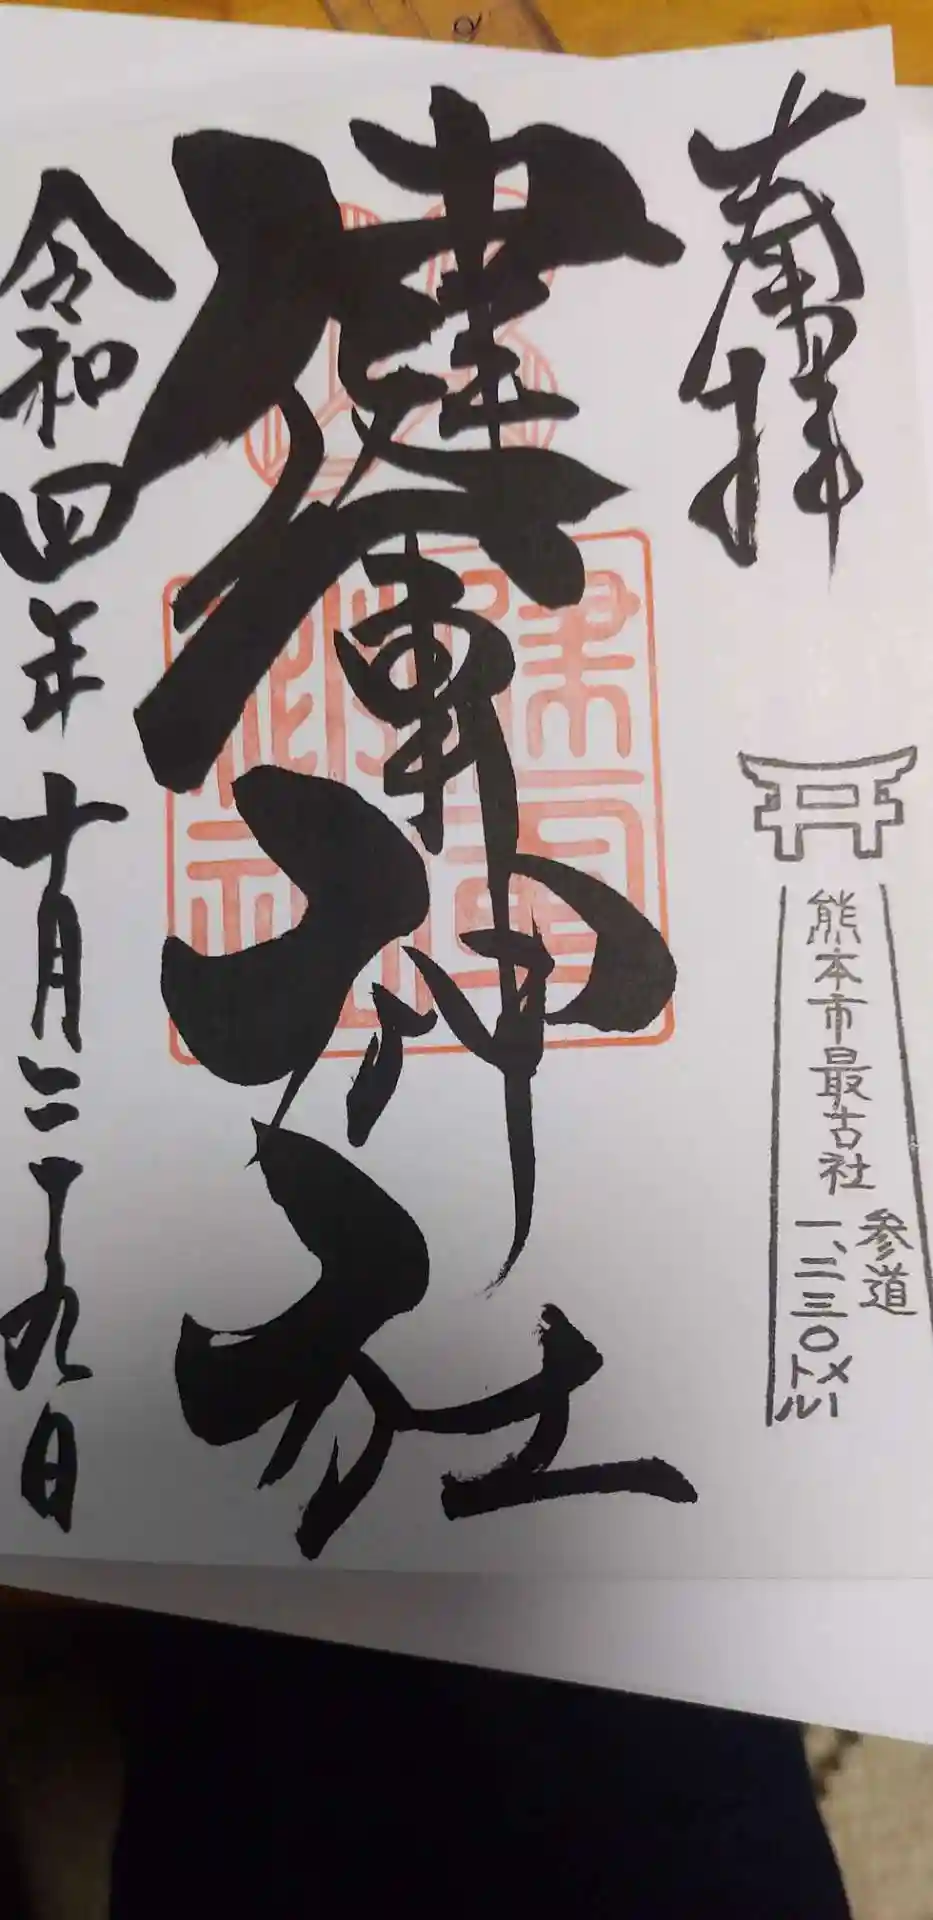 奉拝
熊本市最古社
参道
一、二三〇メートル
健軍神社
健軍神社
令和四年十月二十九日